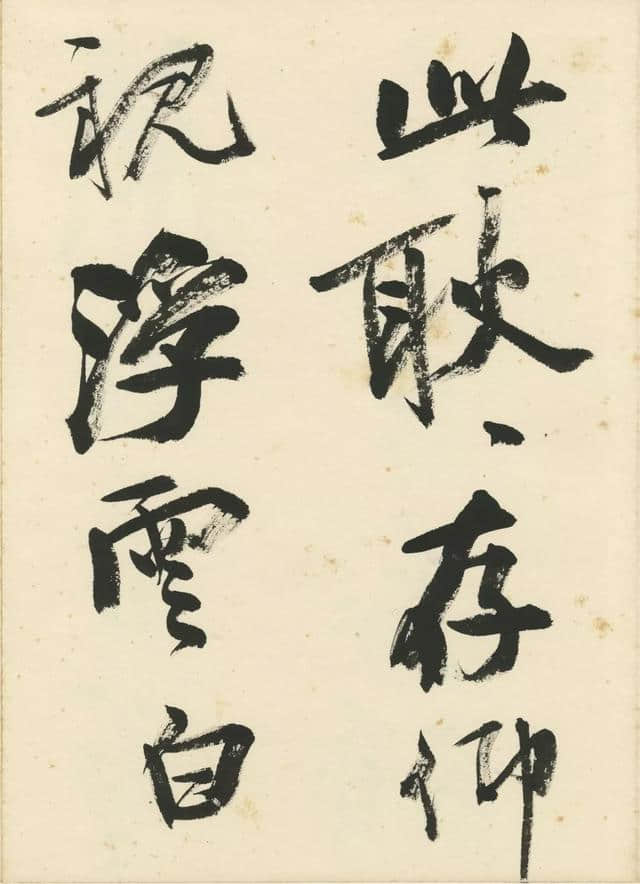 此耿、存仰
視浮雲白